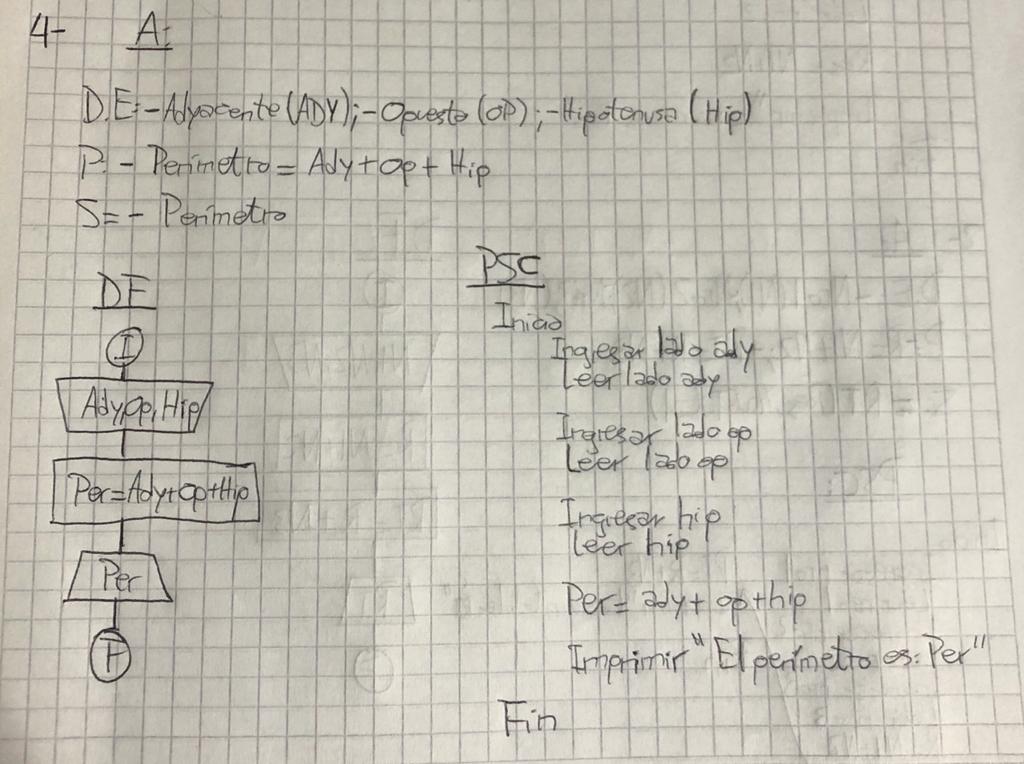 4- A:
D.E:-Adyacente (ADY); -Opuesto (OP); -Hipotenusa (Hip)
P. - Perímetro = Ady + Op + Hip
S= - Perímetro
DF
I
Ady, Op, Hip
Per=Ady+Op+Hip
Per
F
PSC
Inicio
Ingresar lado ady
Leer lado ady
Ingresar lado op
Leer lado op
Ingresar hip
Leer hip
Per= ady + op + hip
Imprimir "El perímetro es: Per"
Fin